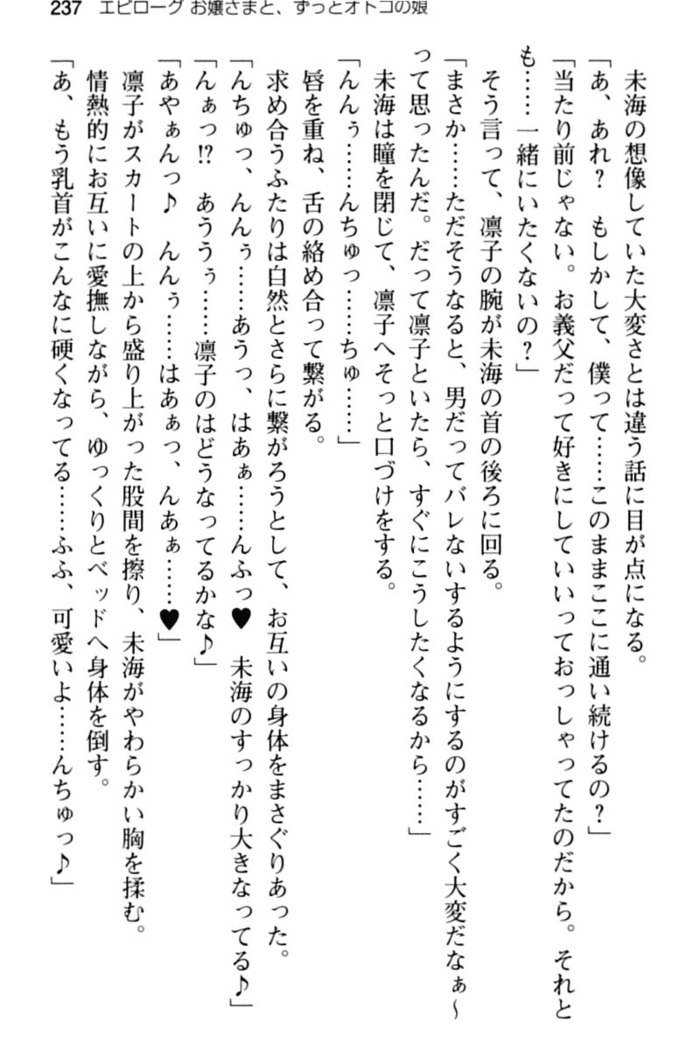 237 エピローグ お嬢さまと、ずっとオトコの娘
　未海の想像していた大変さとは違う話に目が点になる。
「あ、あれ？　もしかして、僕って……このままここに通い続けるの？」
「当たり前じゃない。お義父だって好きにしていいっておっしゃってたのだから。それと
も……一緒にいたくないの？」
　そう言って、凛子の腕が未海の首の後ろに回る。
「まさか……ただそうなると、男だってバレないするようにするのがすごく大変だなぁ〜
って思ったんだ。だって凛子といたら、すぐにこうしたくなるから……」
　未海は瞳を閉じて、凛子へそっと口づけをする。
「んんぅ……んちゅっ……ちゅ……」
　唇を重ね、舌の絡め合って繋がる。
　求め合うふたりは自然とさらに繋がろうとして、お互いの身体をまさぐりあった。
「んちゅっ、んんぅ……あうっ、はあぁ……んふっ♥　未海のすっかり大きなってる♪」
「んぁっ!?　あううぅ……凛子のはどうなってるかな♪」
「あやぁんっ♪　んんぅ……はあぁっ、んあぁ……♥」
　凛子がスカートの上から盛り上がった股間を擦り、未海がやわらかい胸を揉む。
　情熱的にお互いに愛撫しながら、ゆっくりとベッドへ身体を倒す。
「あ、もう乳首がこんなに硬くなってる……ふふ、可愛いよ……んちゅっ♪」